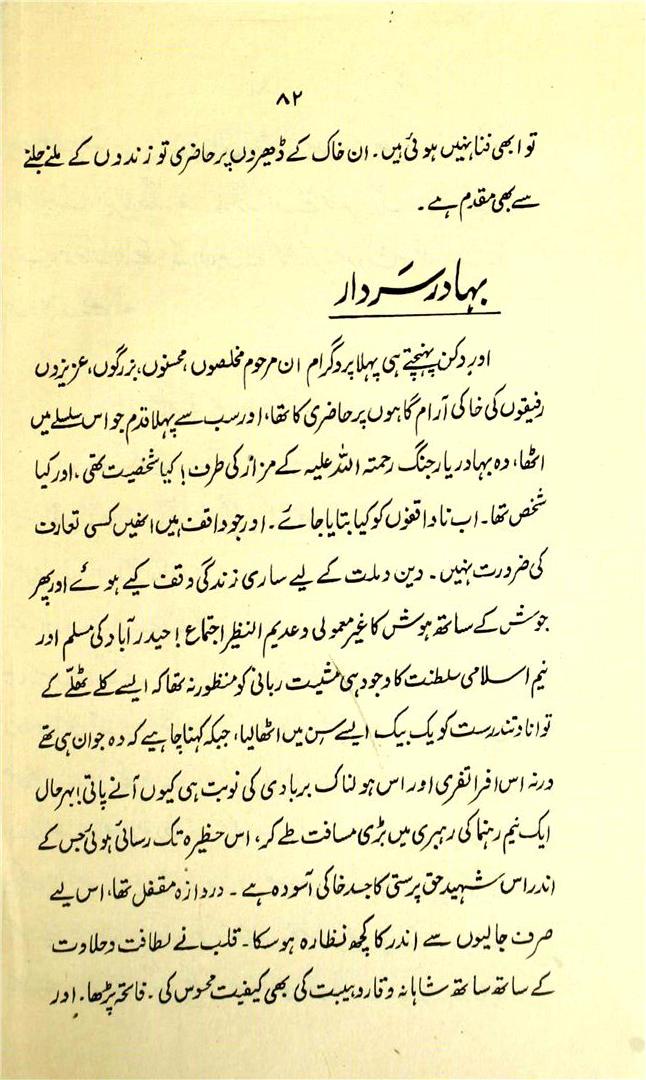 ۸۲
تو ابھی فنا نہیں ہوئی ہیں۔ ان خاک کے ڈھیروں پر حاضری تو زندوں کے ملنے جلنے
سے بھی مقدم ہے۔
بہادر سردار
اور دکن پہنچتے ہی پہلا پروگرام ان مرحوم مخلصوں، محسنوں، بزرگوں، عزیزوں
رفیقوں کی خاکی آرام گاہوں پر حاضری کا تھا، اور سب سے پہلا قدم جو اس سلسلے میں
اٹھا، وہ بہادر یار جنگ رحمتہ اللہ علیہ کے مزار کی طرف! کیا شخصیت تھی، اور کیا
شخص تھا۔ اب ناواقفوں کو کیا بتایا جائے۔ اور جو واقف ہیں انھیں کسی تعارف
کی ضرورت نہیں۔ دین و ملت کے لیے ساری زندگی وقف کیے ہوئے اور پھر
جوش کے ساتھ ہوش کا غیر معمولی و عدیم النظیر اجتماع! حیدر آباد کی مسلم اور
نیم اسلامی سلطنت کا وجود ہی مشیت ربانی کو منظور نہ تھا کہ ایسے کلے ٹھلّے کے
توانا و تندرست کو یک بیک ایسے سن میں اٹھا لیا، جبکہ کہنا چاہیے کہ وہ جوان ہی تھے
ورنہ اس افراتفری اور اس ہولناک بربادی کی نوبت ہی کیوں آنے پاتی! بہر حال
ایک نیم رہنما کی رہبری میں بڑی مسافت طے کر، اس حظیرہ تک رسائی ہوئی جس کے
اندر اس شہید حق پرستی کا جسد خاکی آسودہ ہے۔ دروازہ مقفل تھا، اس لیے
صرف جالیوں سے اندر کا کچھ نظارہ ہو سکا۔ قلب نے لطافت و حلاوت
کے ساتھ ساتھ شاہانہ وقار و ہیبت کی بھی کیفیت محسوس کی۔ فاتحہ پڑھا۔ اور